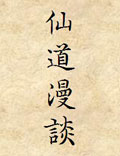 仙道漫談